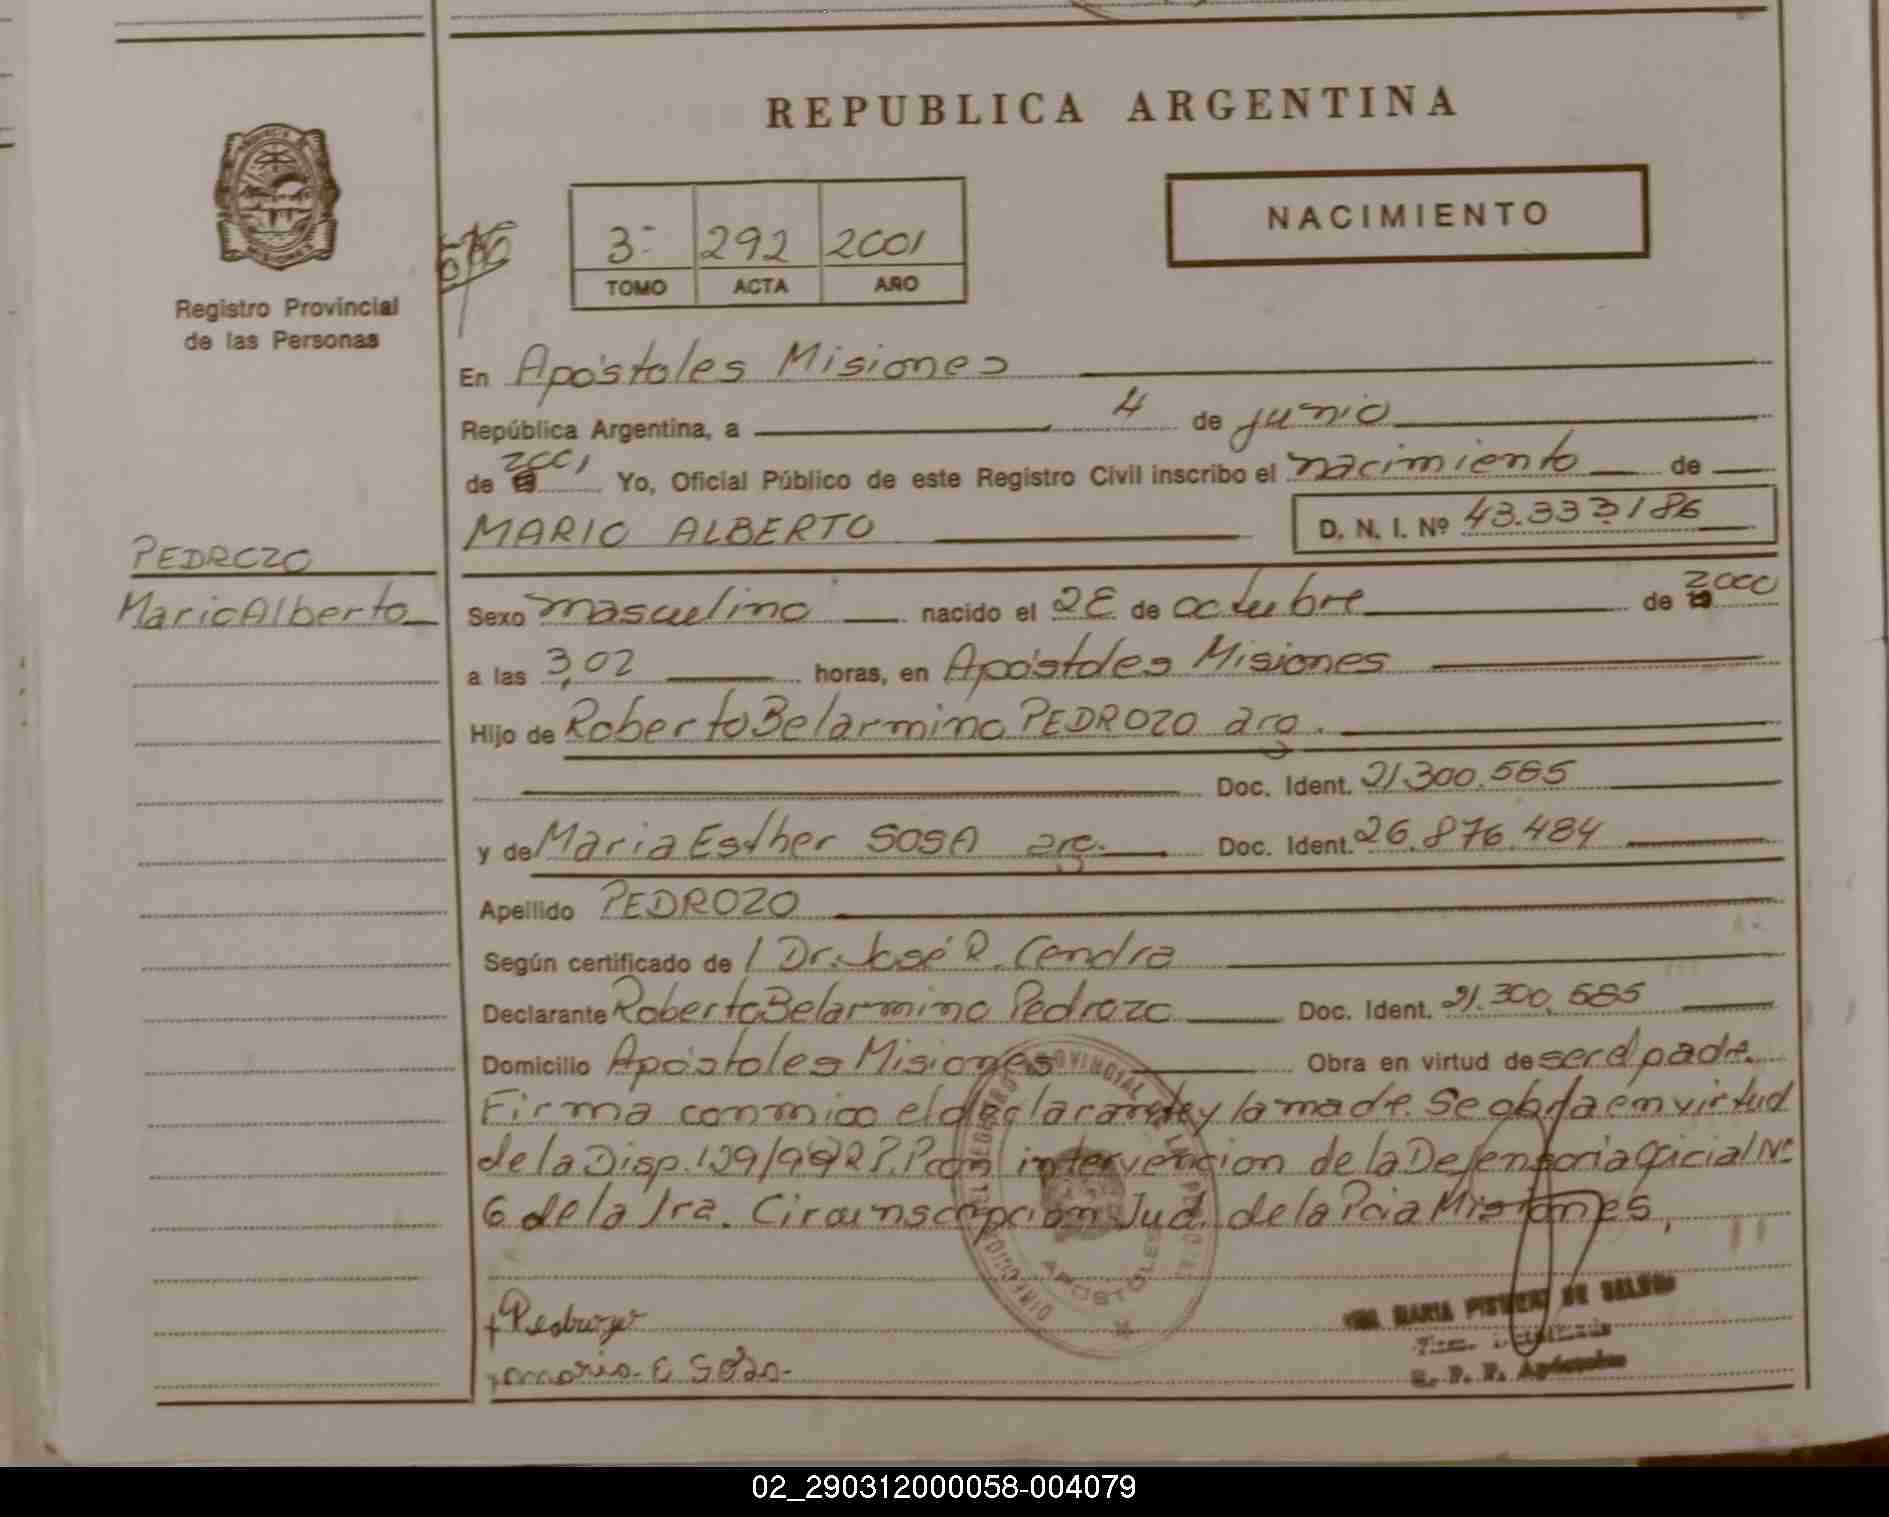 REPUBLICA ARGENTINA
NACIMIENTO
3= 292 2001
TOMO ACTA AÑO
Registro Provincial
de las Personas
En Apóstoles Misiones
República Argentina, a 4 de junio
de 2001 Yo, Oficial Público de este Registro Civil inscribo el nacimiento de
MARIO ALBERTO D. N. I. Nº 43.333186
PEDROZO
Mario Alberto
Sexo masculino nacido el de octubre de 2000
a las 3,02 horas, en Apóstoles Misiones
Hijo de Roberto Belarmino PEDROZO arg.
Doc. Ident. 21.300.585
y de Maria Esther SOSA arg. Doc. Ident. 26.876.484
Apellido PEDROZO
Según certificado de / Dr. José R. Cendra
Declarante Roberto Belarmino Pedrozo Doc. Ident. 21.300.585
Domicilio Apóstoles Misiones Obra en virtud de ser el padre.
Firma conmigo el declarante y la madre. Se obra en virtud
de la Disp. 129/99 R.P.P con intervencion de la Defensoria Oficial Nº
6 de la 1ra. Circunscripcion Jud. de la Pcia Misiones.
DIRECCION DEL REGISTRO PROVINCIAL DE LAS PERSONAS
APOSTOLES
Pedrozo
maria E Sosa
MARIA DE
R. P. P. Apóstoles
02_290312000058-004079